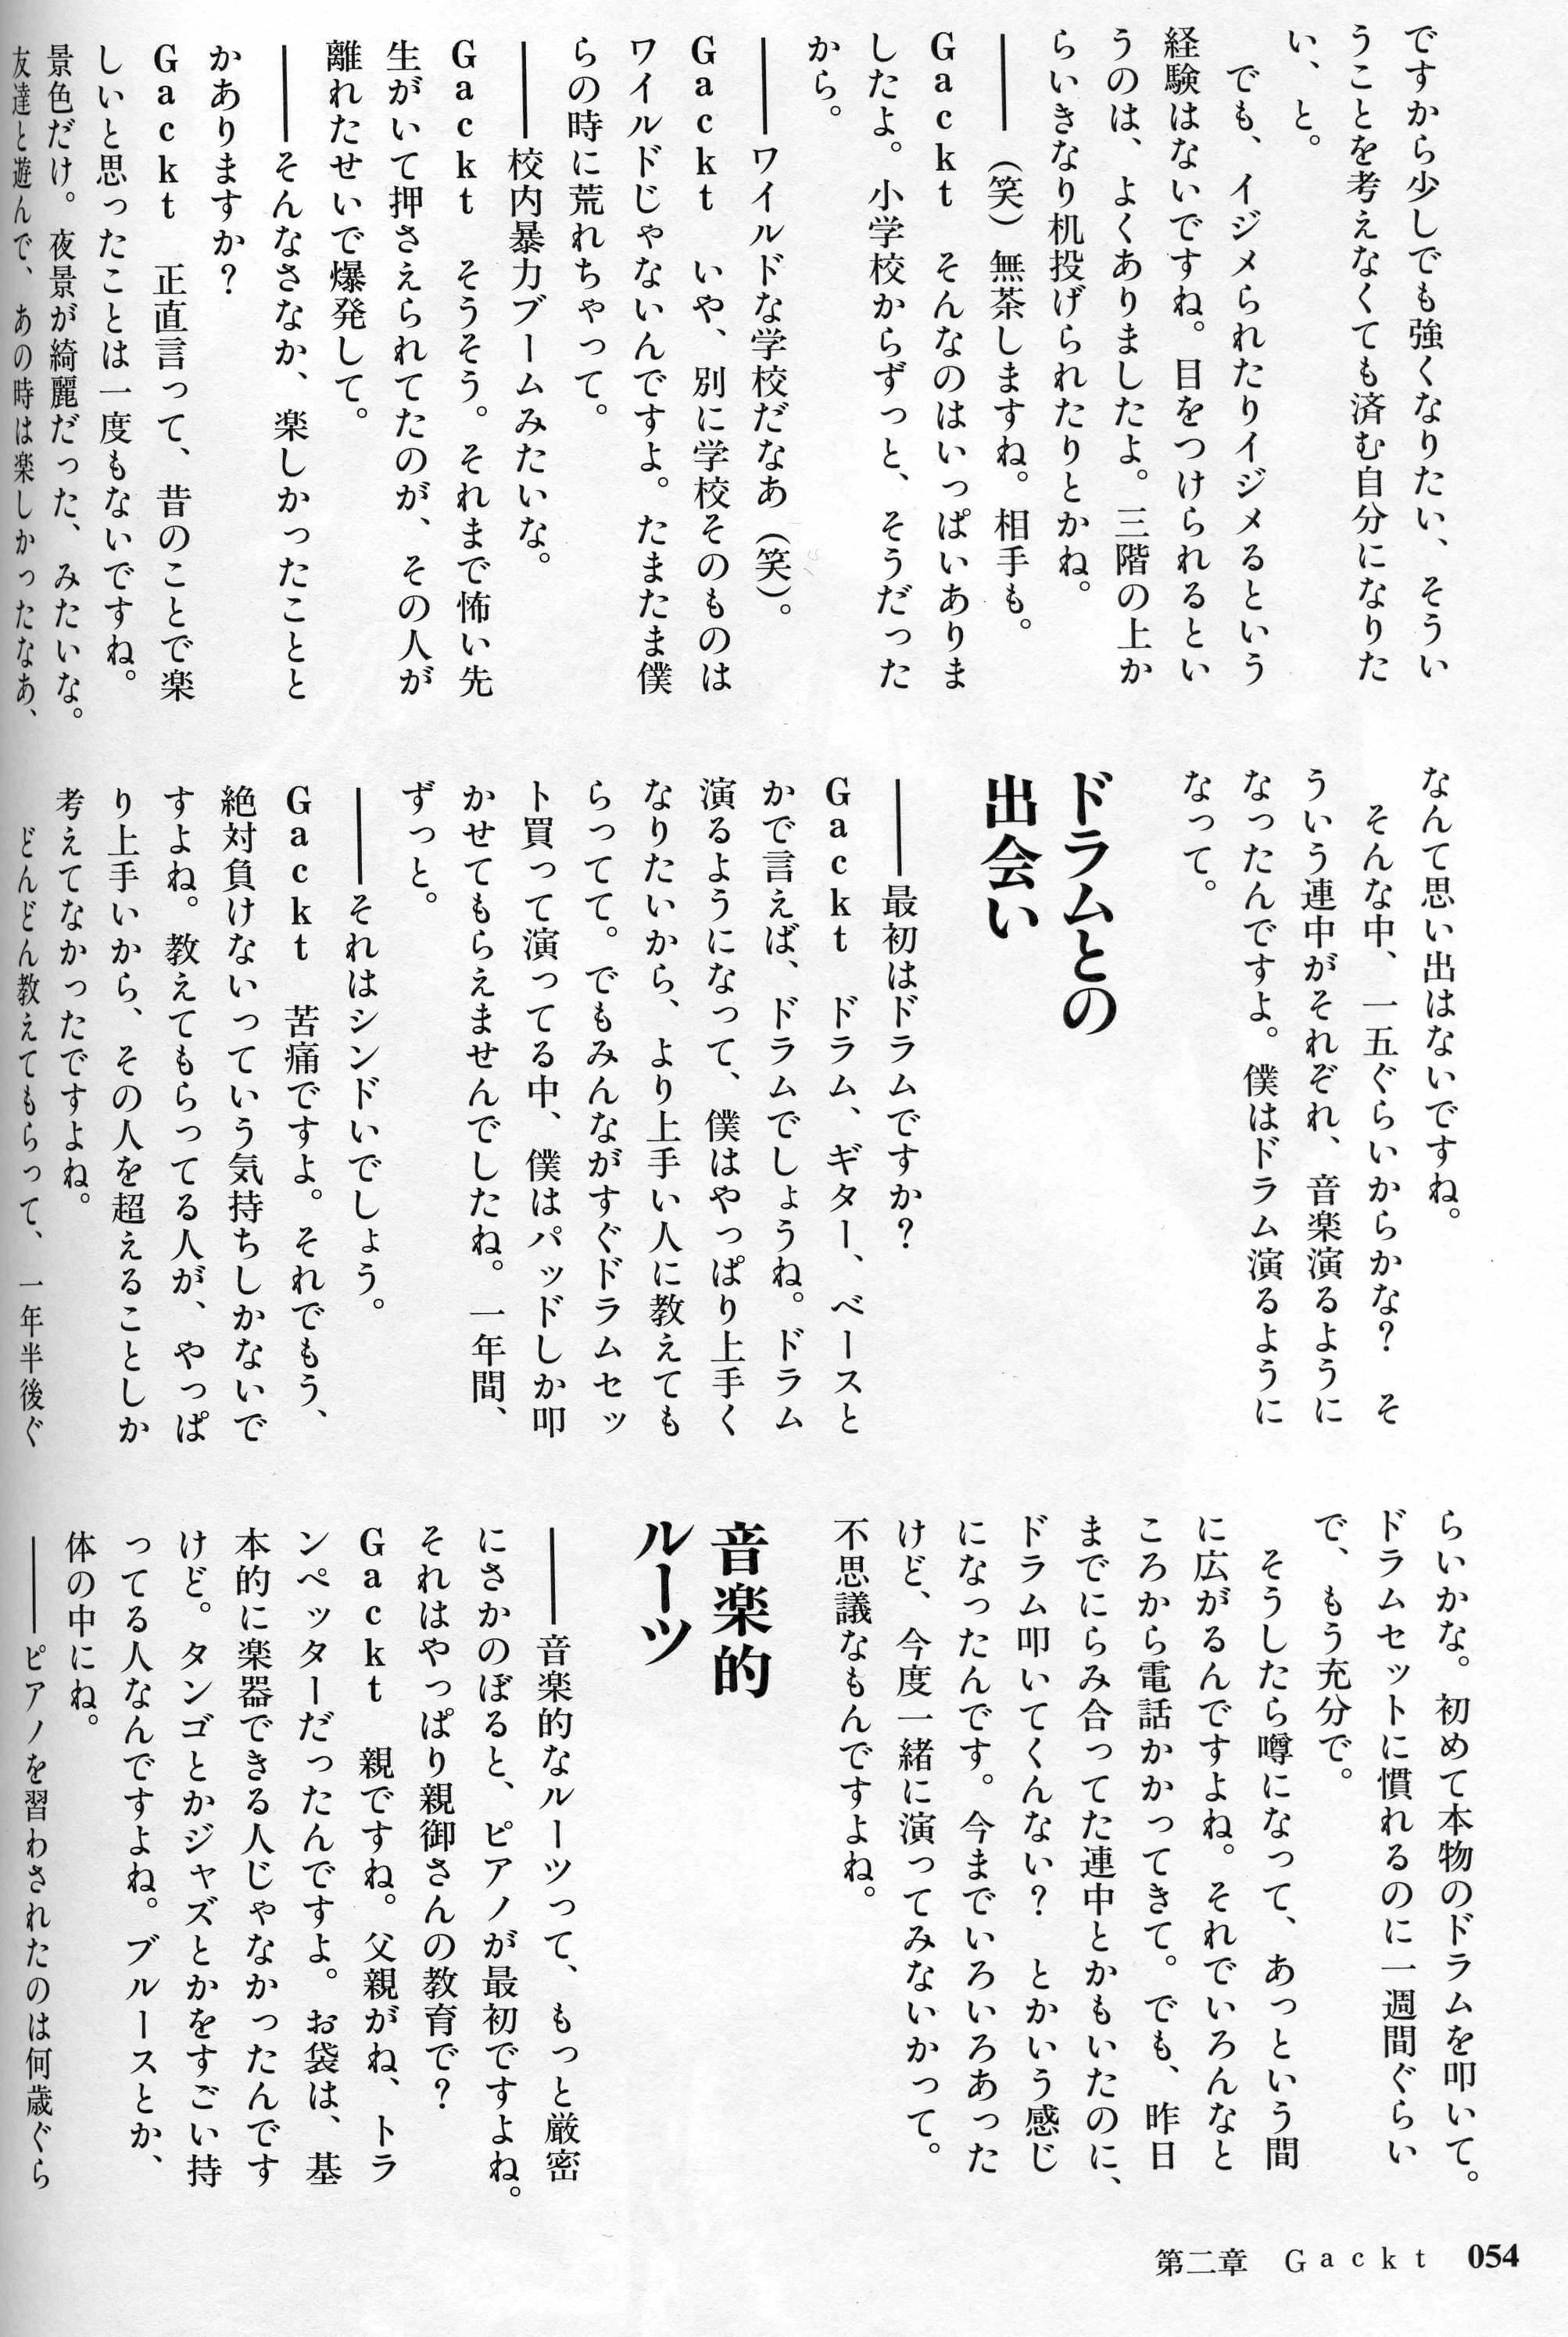 ですから少しでも強くなりたい、そうい
うことを考えなくても済む自分になりた
い、と。
でも、イジメられたりイジメるという
経験はないですね。目をつけられるとい
うのは、よくありましたよ。三階の上か
らいきなり机投げられたりとかね。
――（笑）無茶しますね。相手も。
Gackt　そんなのはいっぱいありま
したよ。小学校からずっと、そうだった
から。
――ワイルドな学校だなあ（笑）。
Gackt　いや、別に学校そのものは
ワイルドじゃないんですよ。たまたま僕
らの時に荒れちゃって。
――校内暴力ブームみたいな。
Gackt　そうそう。それまで怖い先
生がいて押さえられてたのが、その人が
離れたせいで爆発して。
――そんなさなか、楽しかったことと
かありますか？
Gackt　正直言って、昔のことで楽
しいと思ったことは一度もないですね。
景色だけ。夜景が綺麗だった、みたいな。
友達と遊んで、あの時は楽しかったなあ、
なんて思い出はないですね。
そんな中、一五ぐらいからかな？　そ
ういう連中がそれぞれ、音楽演るように
なったんですよ。僕はドラム演るように
なって。
ドラムとの
出会い
――最初はドラムですか？
Gackt　ドラム、ギター、ベースと
かで言えば、ドラムでしょうね。ドラム
演るようになって、僕はやっぱり上手く
なりたいから、より上手い人に教えても
らってて。でもみんながすぐドラムセッ
ト買って演ってる中、僕はパッドしか叩
かせてもらえませんでしたね。一年間、
ずっと。
――それはシンドいでしょう。
Gackt　苦痛ですよ。それでもう、
絶対負けないっていう気持ちしかないで
すよね。教えてもらってる人が、やっぱ
り上手いから、その人を超えることしか
考えてなかったですよね。
どんどん教えてもらって、一年半後ぐ
らいかな。初めて本物のドラムを叩いて。
ドラムセットに慣れるのに一週間ぐらい
で、もう充分で。
そうしたら噂になって、あっという間
に広がるんですよね。それでいろんなと
ころから電話かかってきて。でも、昨日
までにらみ合ってた連中とかもいたのに、
ドラム叩いてくんない？　とかいう感じ
になったんです。今までいろいろあった
けど、今度一緒に演ってみないかって。
不思議なもんですよね。
音楽的
ルーツ
――音楽的なルーツって、もっと厳密
にさかのぼると、ピアノが最初ですよね。
それはやっぱり親御さんの教育で？
Gackt　親ですね。父親がね、トラ
ンペッターだったんですよ。お袋は、基
本的に楽器できる人じゃなかったんです
けど。タンゴとかジャズとかをすごい持
ってる人なんですよね。ブルースとか、
体の中にね。
――ピアノを習わされたのは何歳ぐら
第二章　Gackt　054